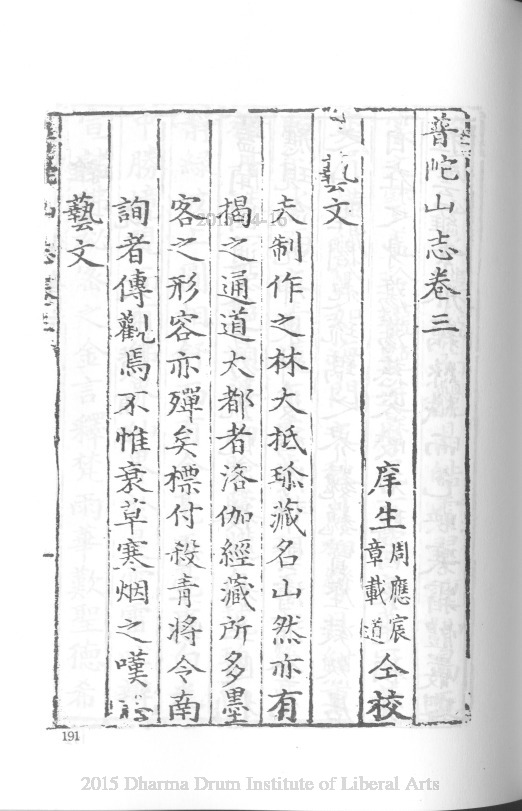 普陀山志卷三
庠生周應宸章載道仝校
藝文
夫制作之林大抵珎藏名山然亦有
揭之通道大都者洛伽經藏所多墨
客之形容亦殫矣標付殺青將令南
詢者傳觀焉不惟衰草寒烟之嘆
藝文
山志卷三
2015-4-16
191
2015 Dharma Drum Institute of Liberal Arts